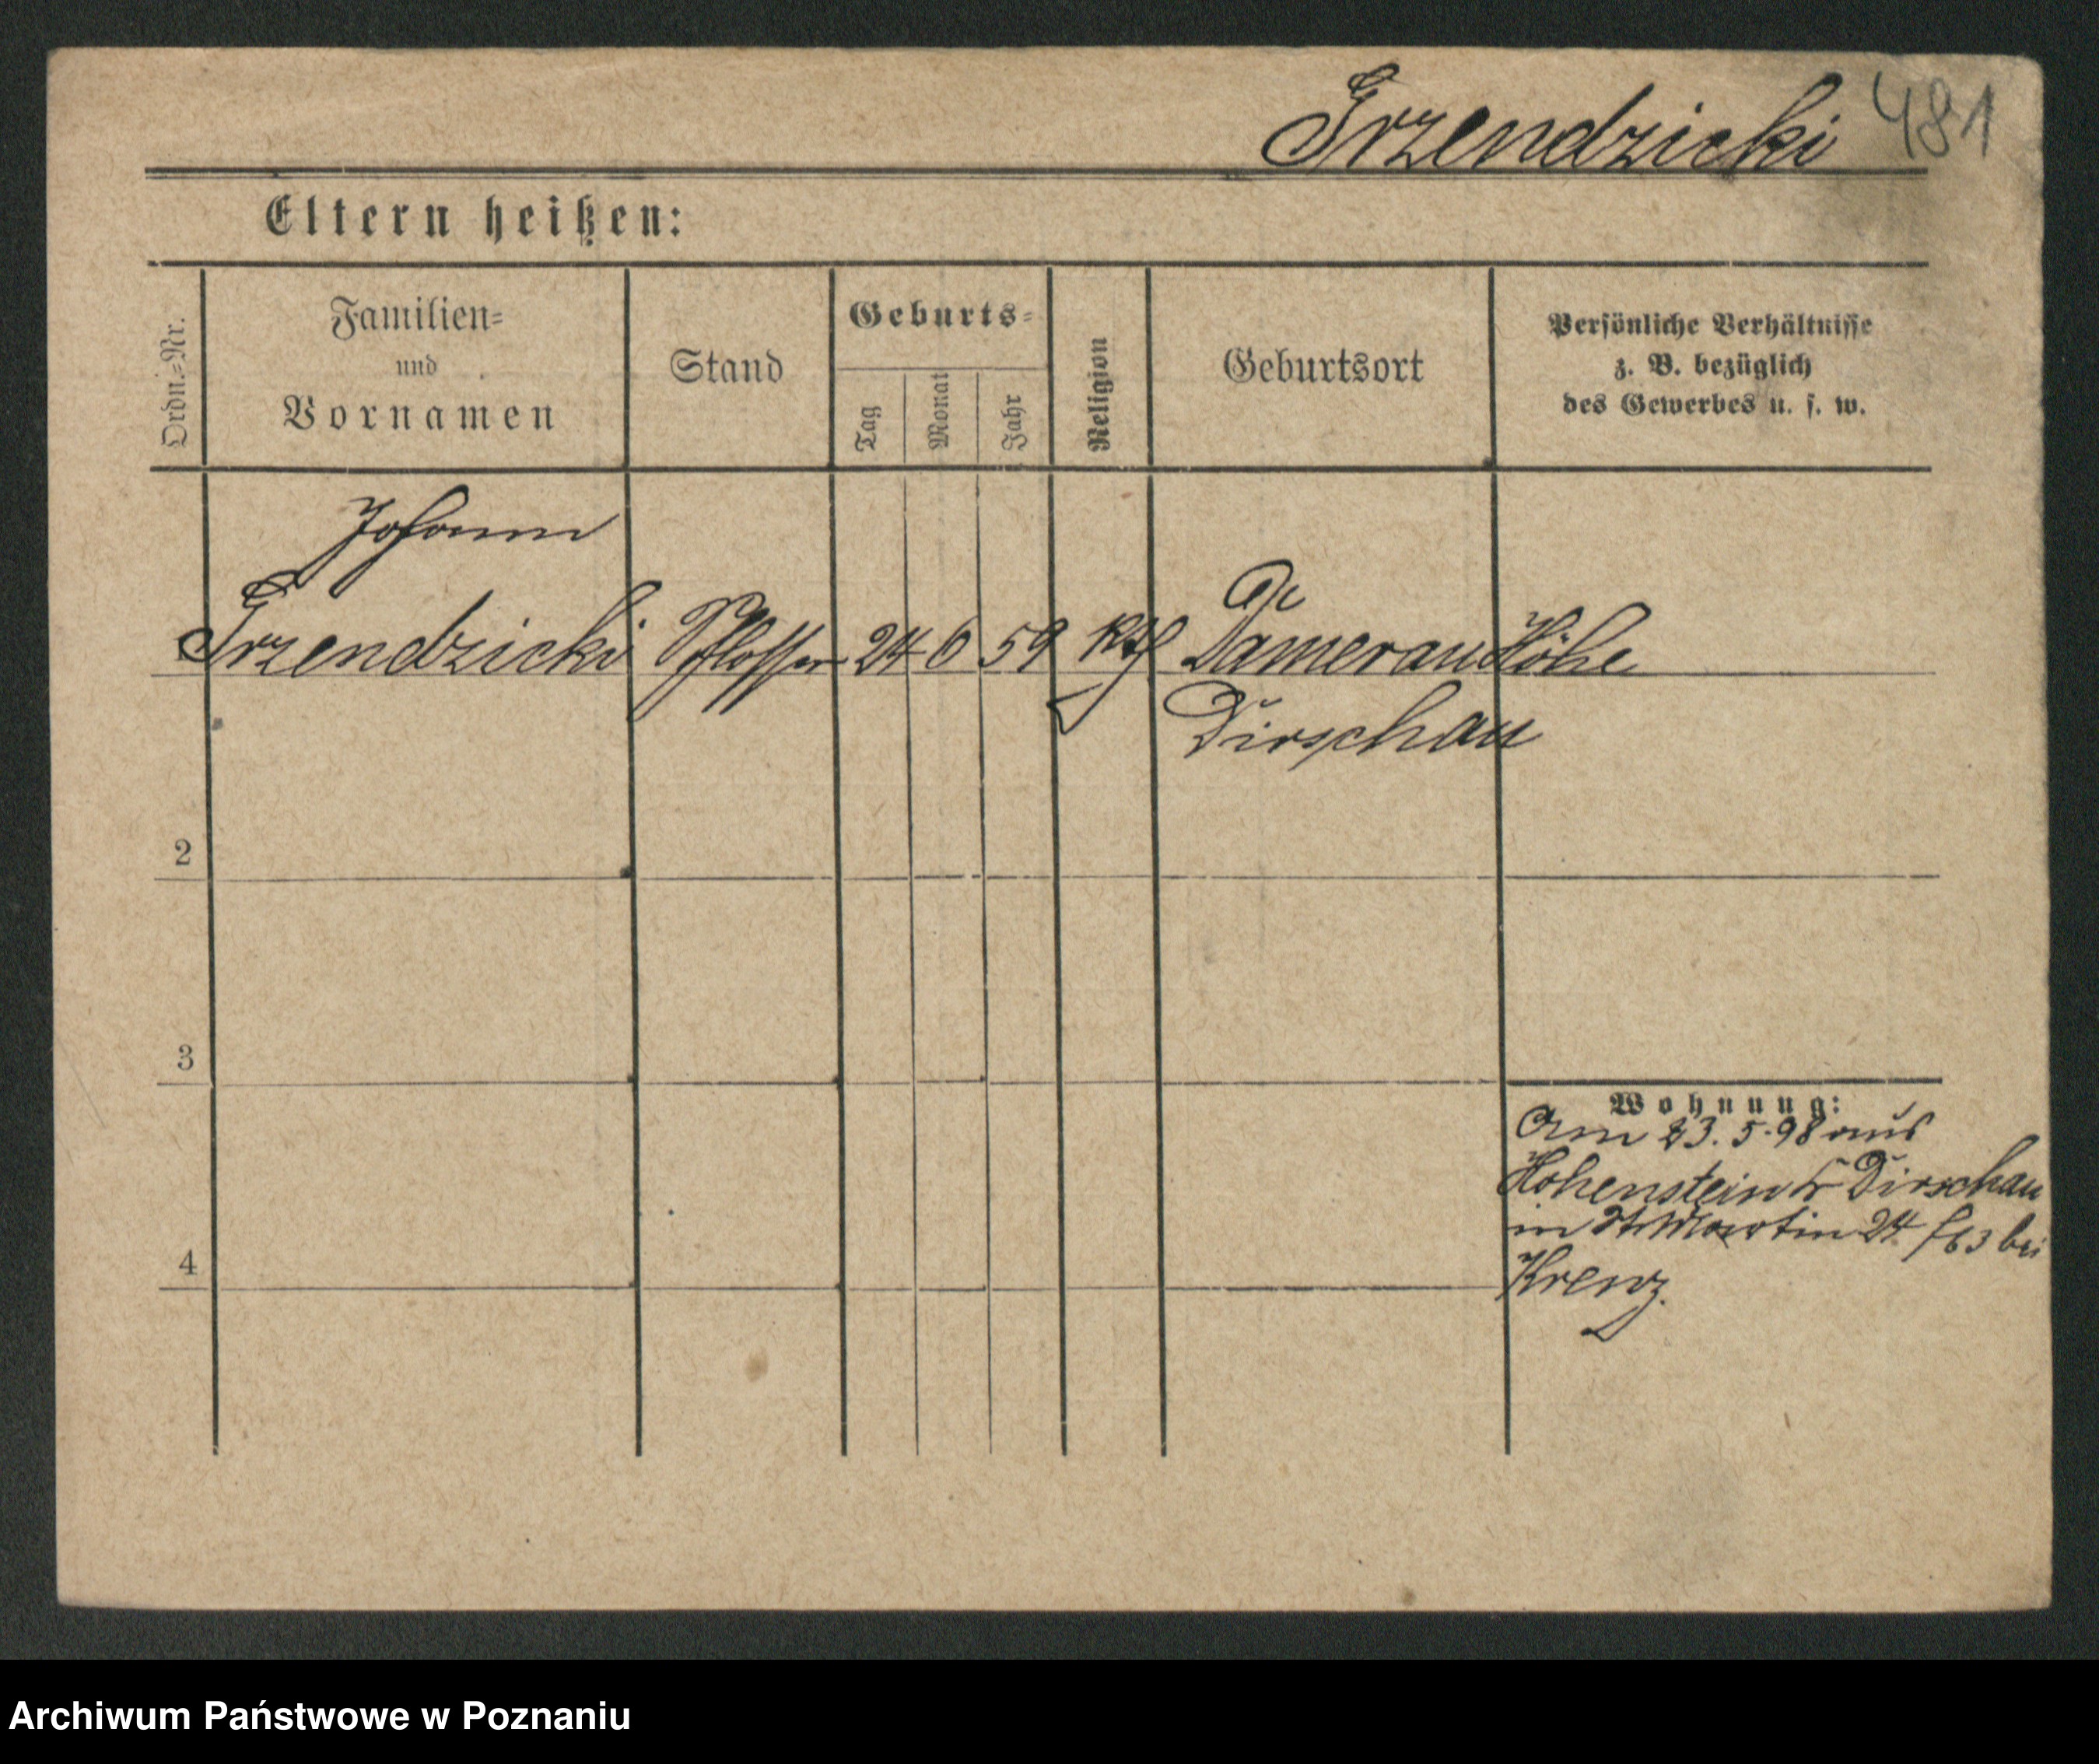 Trzendzicki 481
Eltern heißen:
Ordn.=Nr.
Familien=
und
Vornamen
Stand
Geburts=
Tag
Monat
Jahr
Religion
Geburtsort
Persönliche Verhältnisse
z. B. bezüglich
des Gewerbes u. s. w.
Johann
Trzendzicki Schlosser 24 6 59 kth Damerau Höhe
Dirschau
2
3
Wohnung:
Am 23. 5. 98 aus
Hohenstein Dirschau
in St Martin 24 bei
Krenz.
4
Archiwum Państwowe w Poznaniu